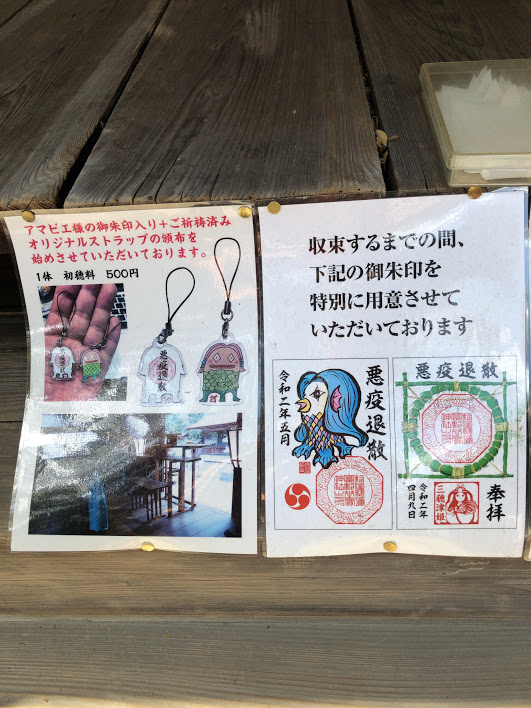 アマビエ様の御朱印入り+ご祈祷済み
オリジナルストラップの頒布を
始めさせていただいております。
1体 初穂料 500円
悪疫退散
収束するまでの間、
下記の御朱印を
特別に用意させて
いただいております
悪疫退散
令和二年五月
悪疫退散
奉拝
三穂津姫
令和二年
四月九日